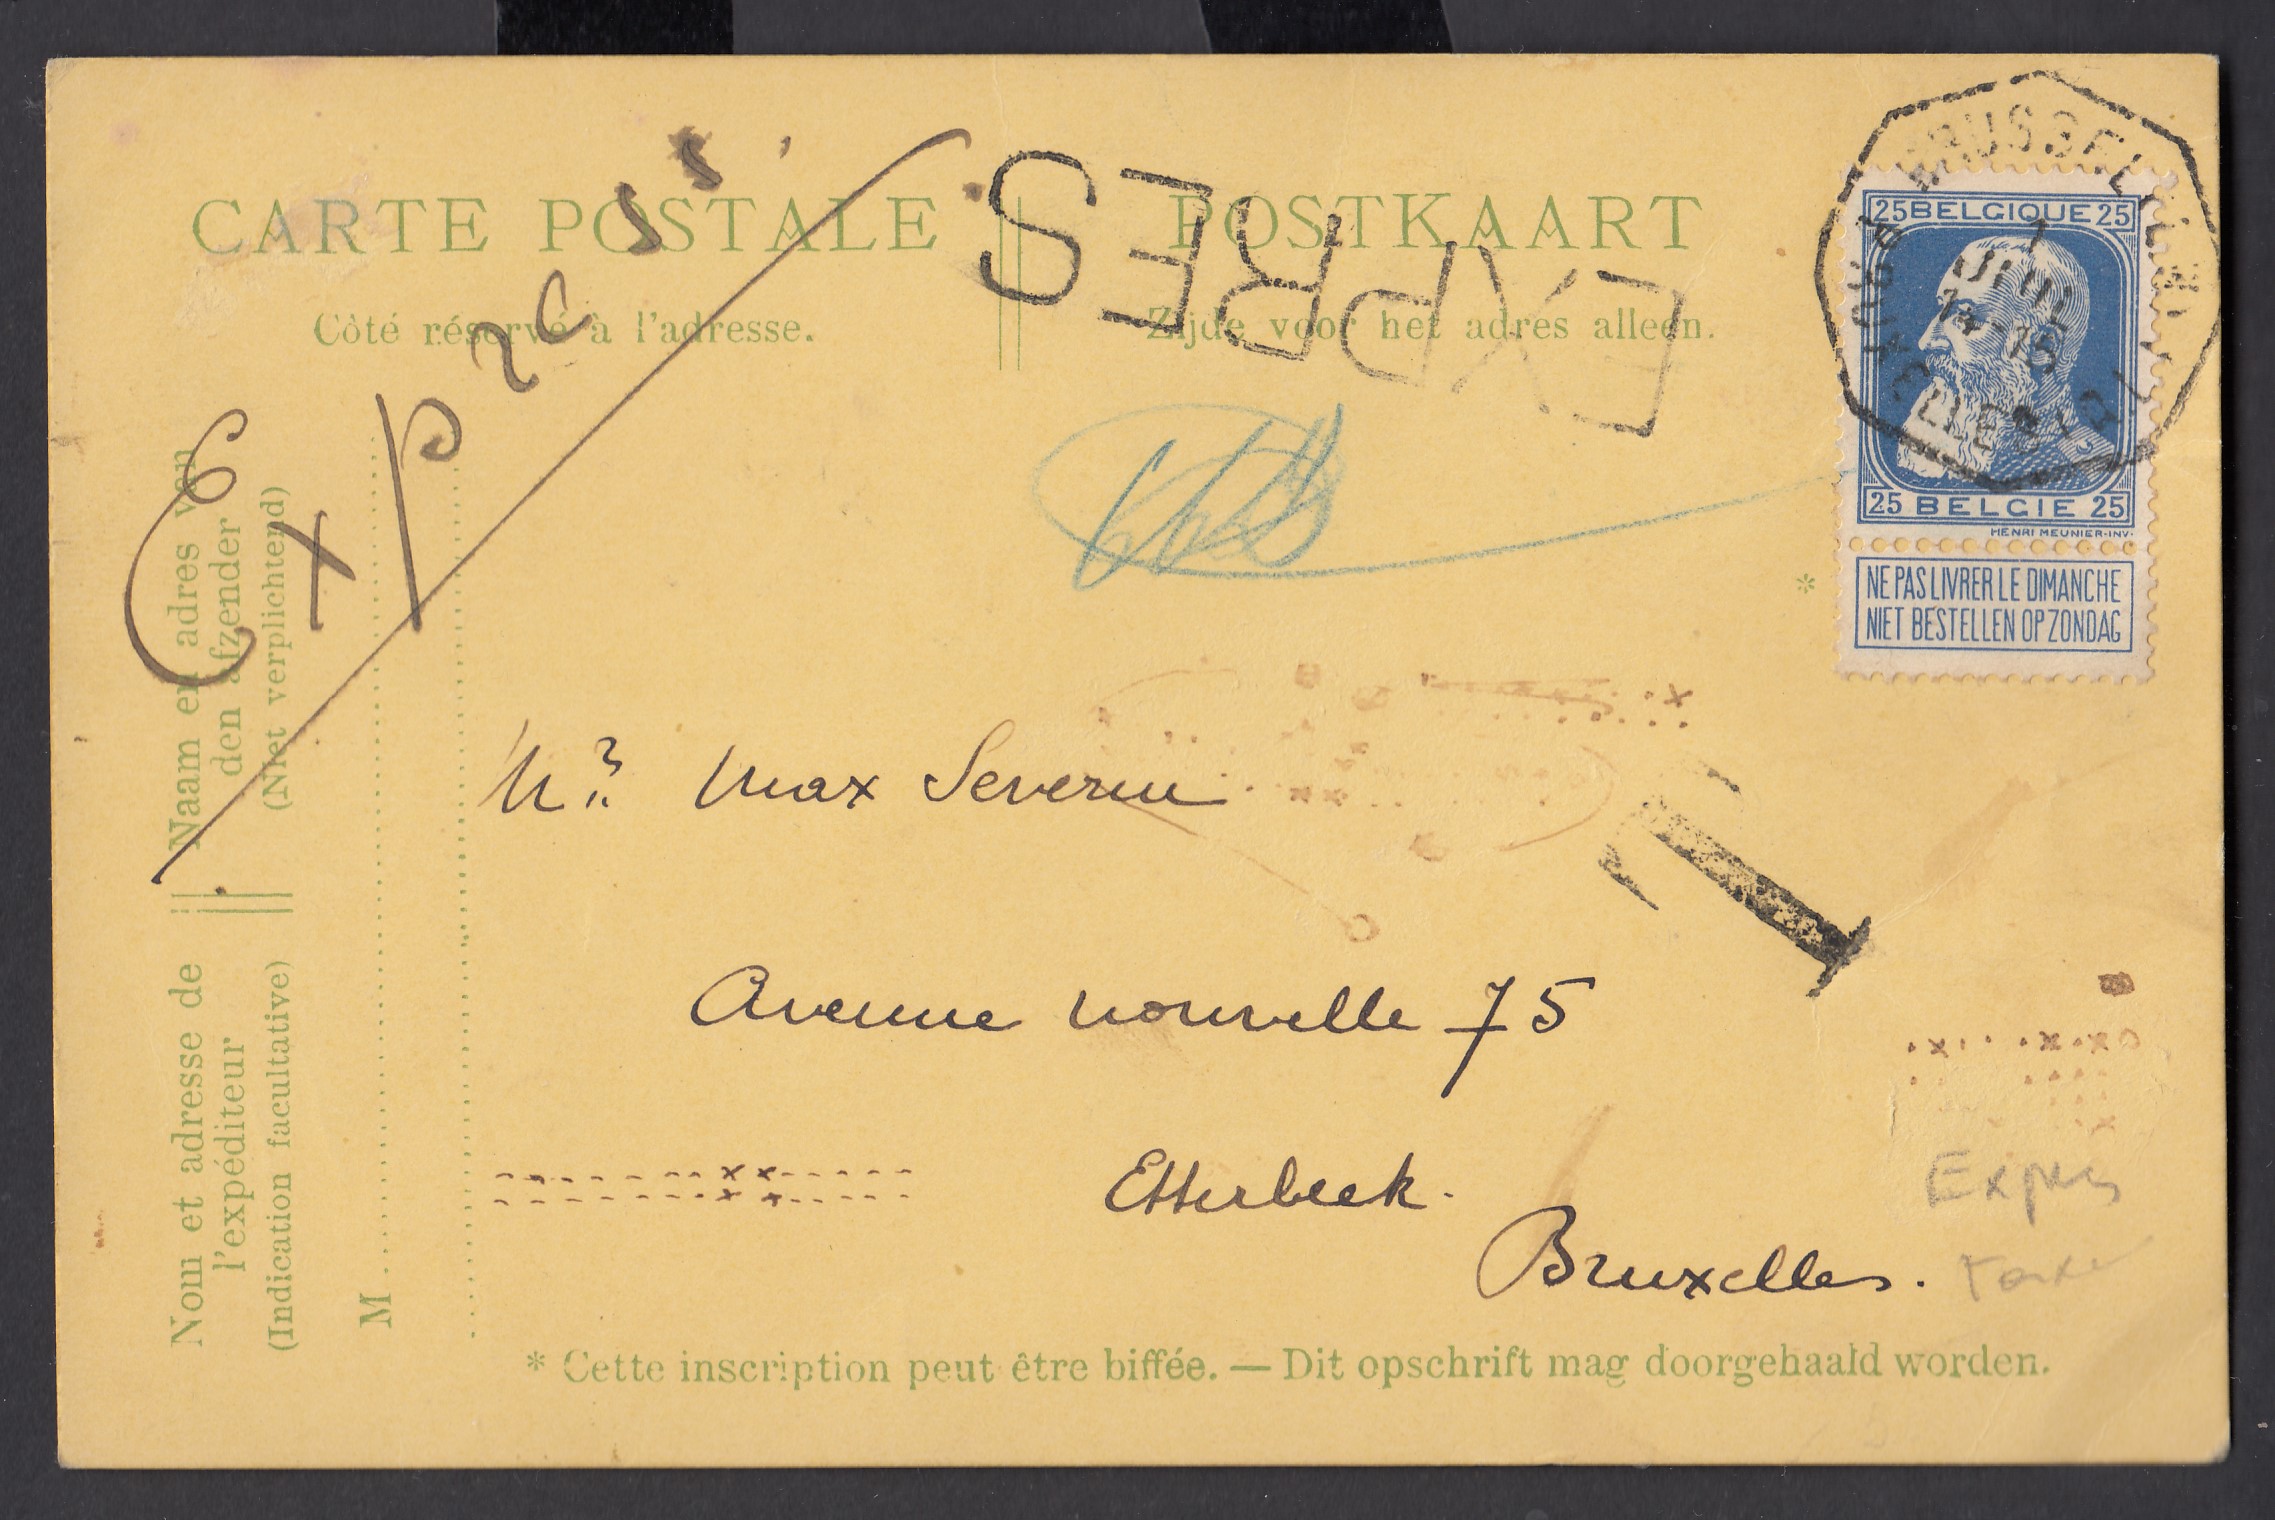 CARTE POSTALE
POSTKAART
Côté réservé à l'adresse.
Zijde voor het adres alleen.
EXPRES
Express
25 BELGIQUE 25
25 BELGIE 25
HENRI MEUNIER-INV.
NE PAS LIVRER LE DIMANCHE
NIET BESTELLEN OP ZONDAG
*
T
Mr. Max Severin
Avenue nouvelle 75
Etterbeek.
Bruxelles.
Expres
Naam en adres van
den afzender
(Niet verplichtend)
Nom et adresse de
l'expéditeur
(Indication facultative)
M
* Cette inscription peut être biffée. — Dit opschrift mag doorgehaald worden.